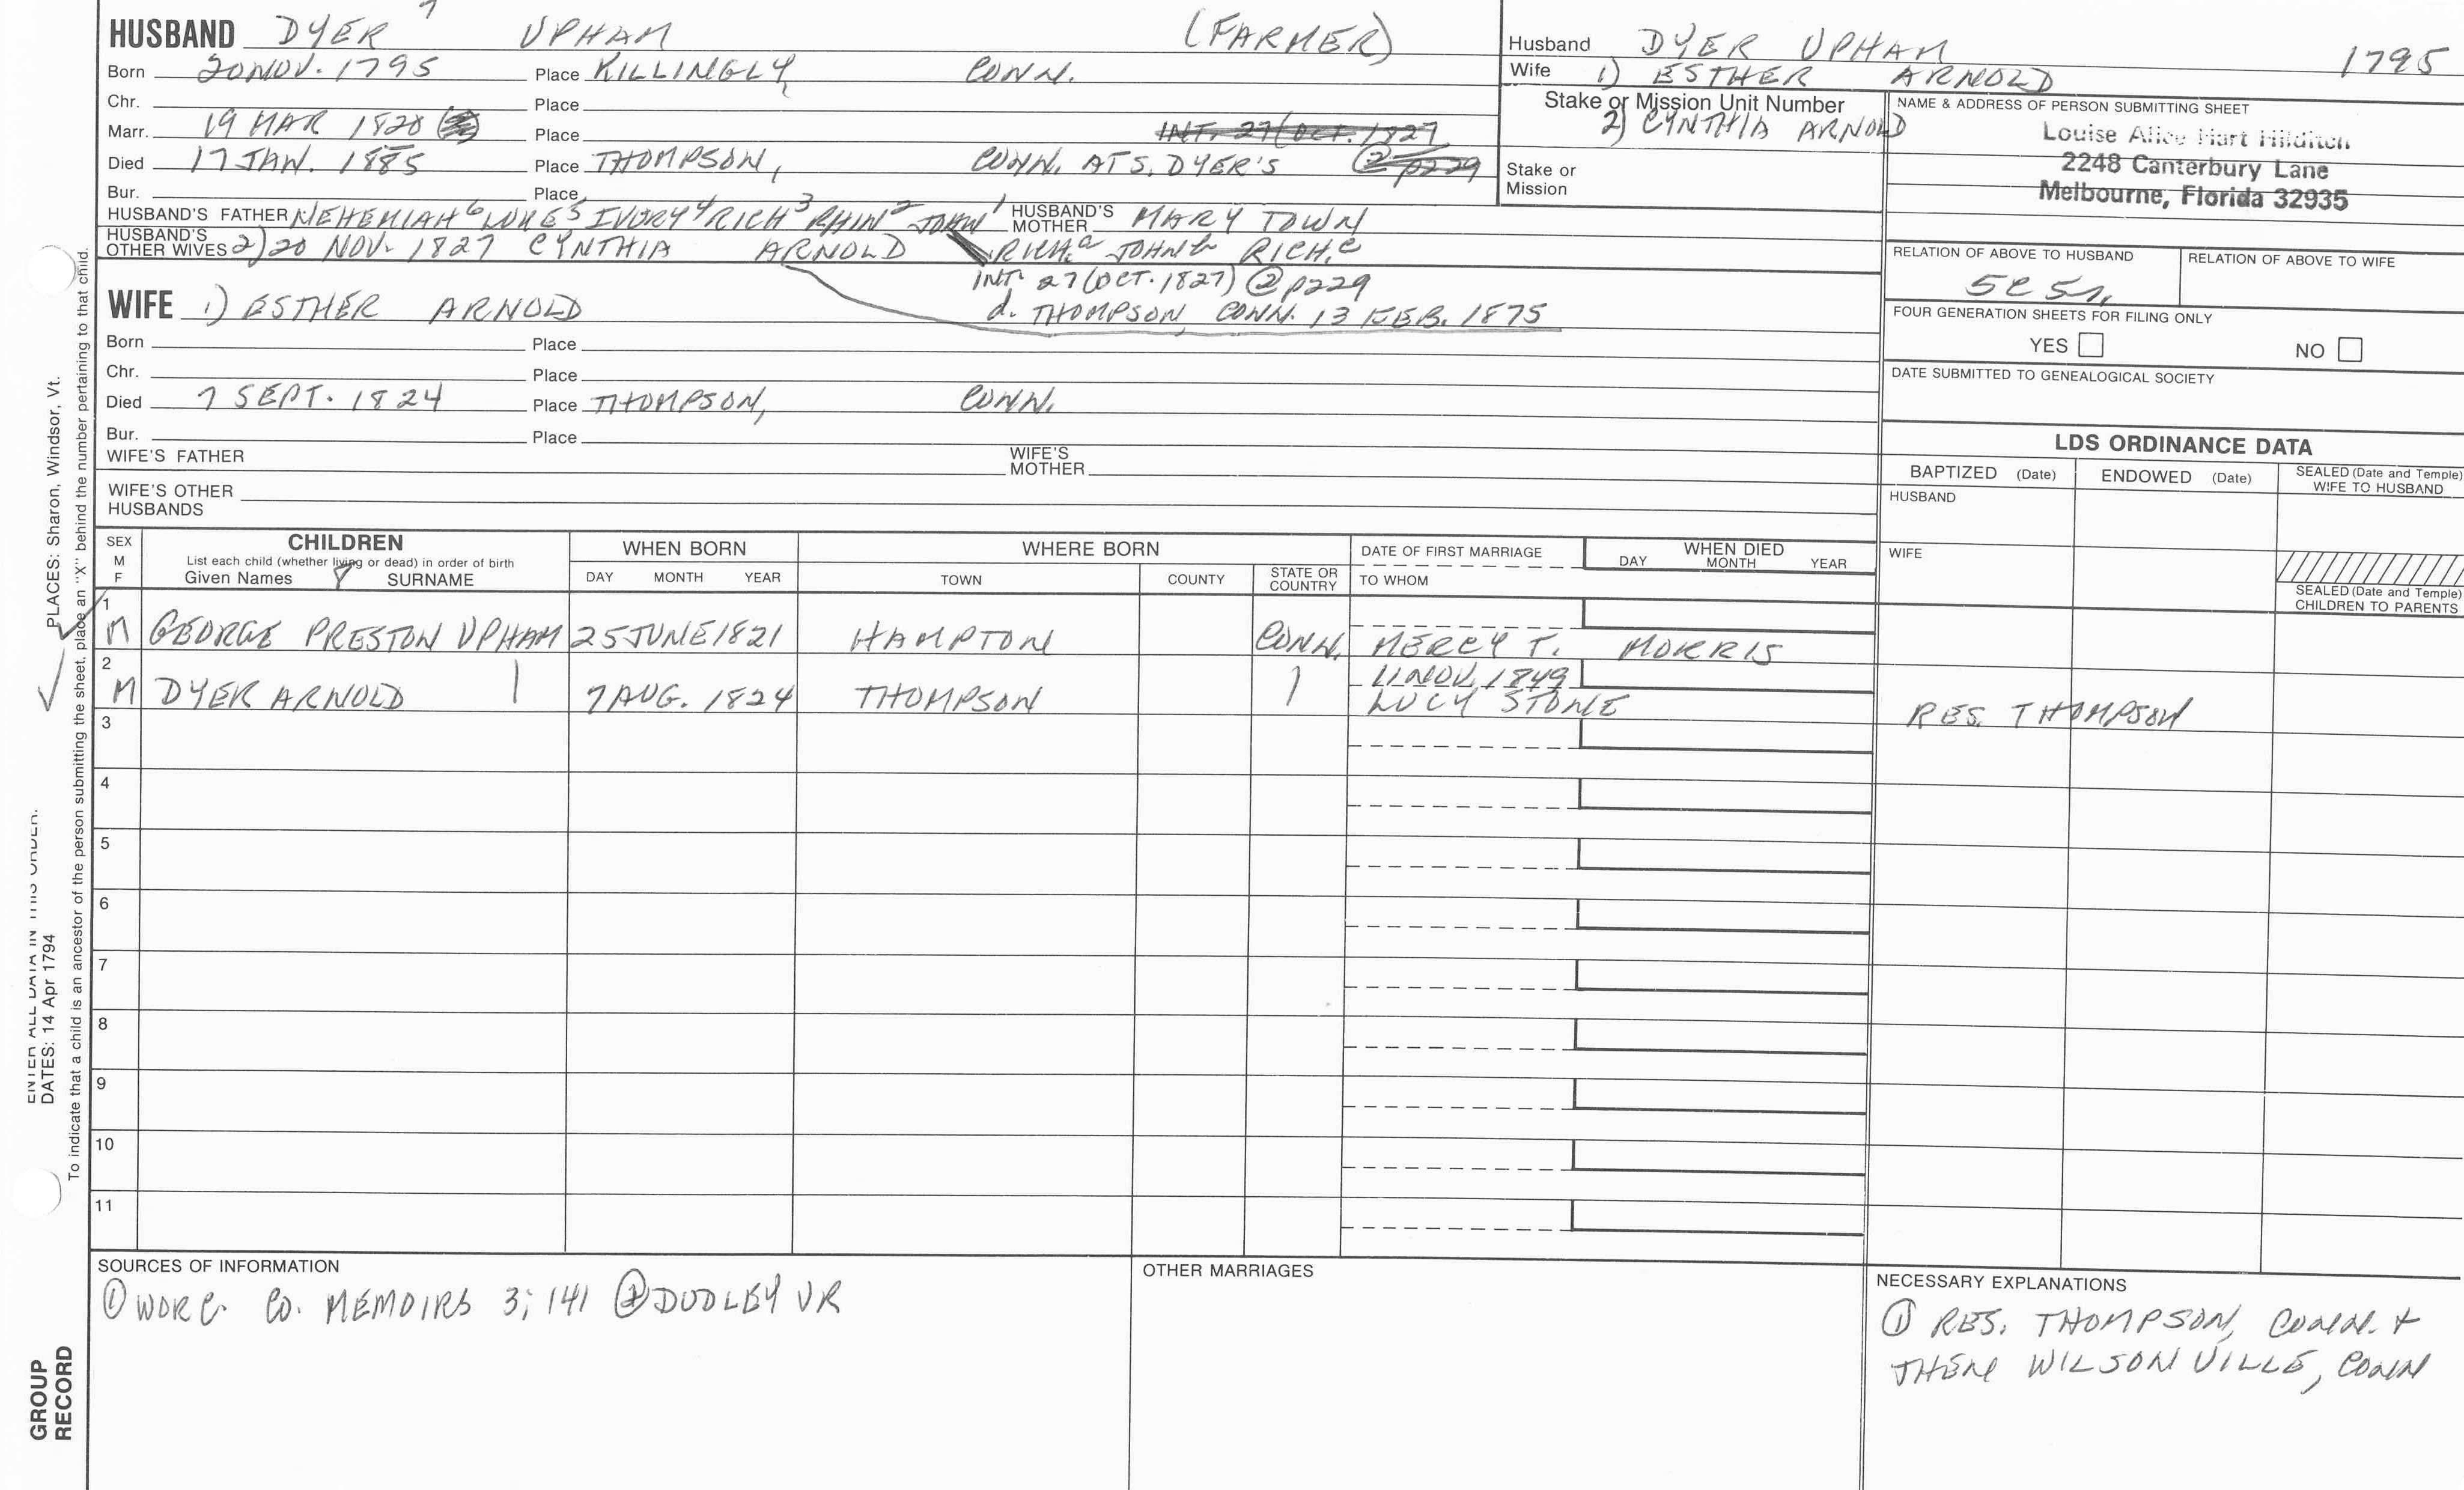 HUSBAND DYER 7 UPHAM (FARMER)
Born 20 NOV. 1795 Place KILLINGLY, CONN.
Chr. Place
Marr. 19 MAR 1820 Place INT. 27 (OCT. 1827
Died 17 JAN. 1885 Place THOMPSON, CONN. AT S. DYER'S 2 p229
Bur. Place
HUSBAND'S FATHER NEHEMIAH 6 LUKE 5 IVORY 4 RICH 3 PHIN 2 JOHN 1 HUSBAND'S MOTHER MARY TOWN
HUSBAND'S OTHER WIVES 2) 20 NOV. 1827 CYNTHIA ARNOLD RICH. a JOHN b RICH. c
INT. 27 (OCT. 1827) 2 p229
WIFE 1) ESTHER ARNOLD d. THOMPSON, CONN. 13 FEB. 1875
Born Place
Chr. Place
Died 7 SEPT. 1824 Place THOMPSON, CONN.
Bur. Place
WIFE'S FATHER WIFE'S MOTHER
WIFE'S OTHER HUSBANDS
Husband DYER UPHAM 1795
Wife 1) ESTHER ARNOLD
Stake or Mission Unit Number
2) CYNTHIA ARNOLD
Stake or Mission
NAME & ADDRESS OF PERSON SUBMITTING SHEET
Louise Alice Hart Hilditch
2248 Canterbury Lane
Melbourne, Florida 32935
RELATION OF ABOVE TO HUSBAND RELATION OF ABOVE TO WIFE
FOUR GENERATION SHEETS FOR FILING ONLY
YES NO
DATE SUBMITTED TO GENEALOGICAL SOCIETY
LDS ORDINANCE DATA
BAPTIZED (Date) ENDOWED (Date) SEALED (Date and Temple) WIFE TO HUSBAND
HUSBAND
WIFE
SEALED (Date and Temple) CHILDREN TO PARENTS
SEX M F CHILDREN WHEN BORN WHERE BORN DATE OF FIRST MARRIAGE WHEN DIED
List each child (whether living or dead) in order of birth
Given Names 8 SURNAME DAY MONTH YEAR TOWN COUNTY STATE OR COUNTRY TO WHOM DAY MONTH YEAR
1 M GEORGE PRESTON UPHAM 25 JUNE 1821 HAMPTON CONN. MERCY T. MORRIS
2 M DYER ARNOLD | 7 AUG. 1824 THOMPSON | 11 NOV. 1849 LUCY STONE RES. THOMPSON
3
4
5
6
7
8
9
10
11
SOURCES OF INFORMATION
① WORC. CO. MEMOIRS 3; 141 ② DUDLEY VR
OTHER MARRIAGES
NECESSARY EXPLANATIONS
① RES. THOMPSON, CONN. +
THEN WILSONVILLE, CONN
ENTER ALL DATA IN THIS ORDER:
DATES: 14 Apr 1794
PLACES: Sharon, Windsor, Vt.
To indicate that a child is an ancestor of the person submitting the sheet, place an "X" behind the number pertaining to that child.
GROUP RECORD